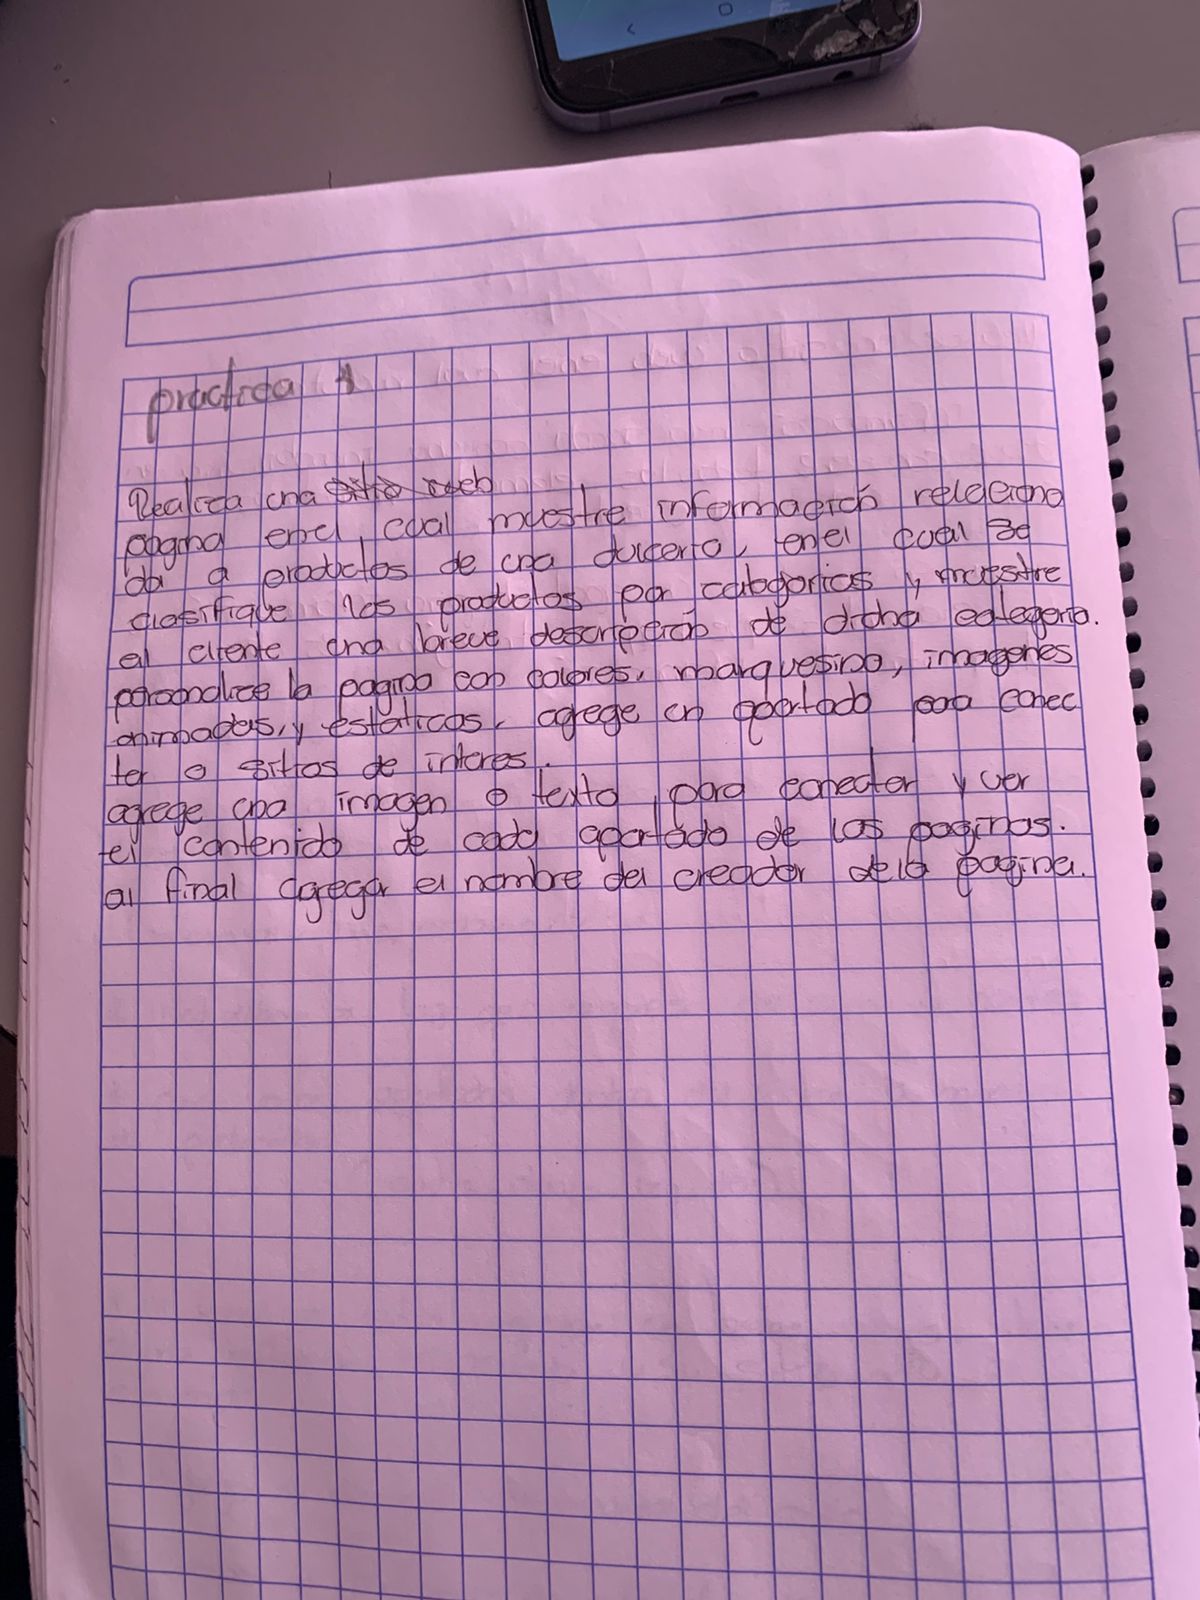 practica 1
Realiza una sitio web
pagina en el cual muestre información relaciona
da a productos de una dulceria, en el cual se
clasifique los productos por categorias y muestre
al cliente una breve descripción de dicha categoria.
personalice la pagina con colores, marquesina, imagenes
animadas, y estaticas, agrege un apartado para conec
tar a sitios de interes.
agrege una imagen o texto para conectar y ver
el contenido de cada apartado de las paginas.
al final agregar el nombre del creador de la pagina.